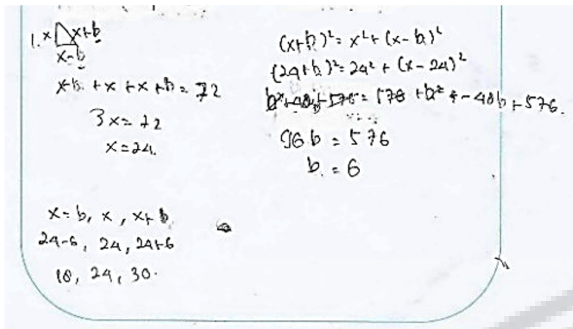 1. x x+b
x-b
x-b + x + x + b = 72
3x = 72
x = 24.
x - b, x, x + b
24-6, 24, 24+6
18, 24, 30.
(x+b)² = x² + (x-b)²
(24+b)² = 24² + (x-24)²
b² + 48b + 576 = 576 + b² + -48b + 576.
96b = 576
b = 6